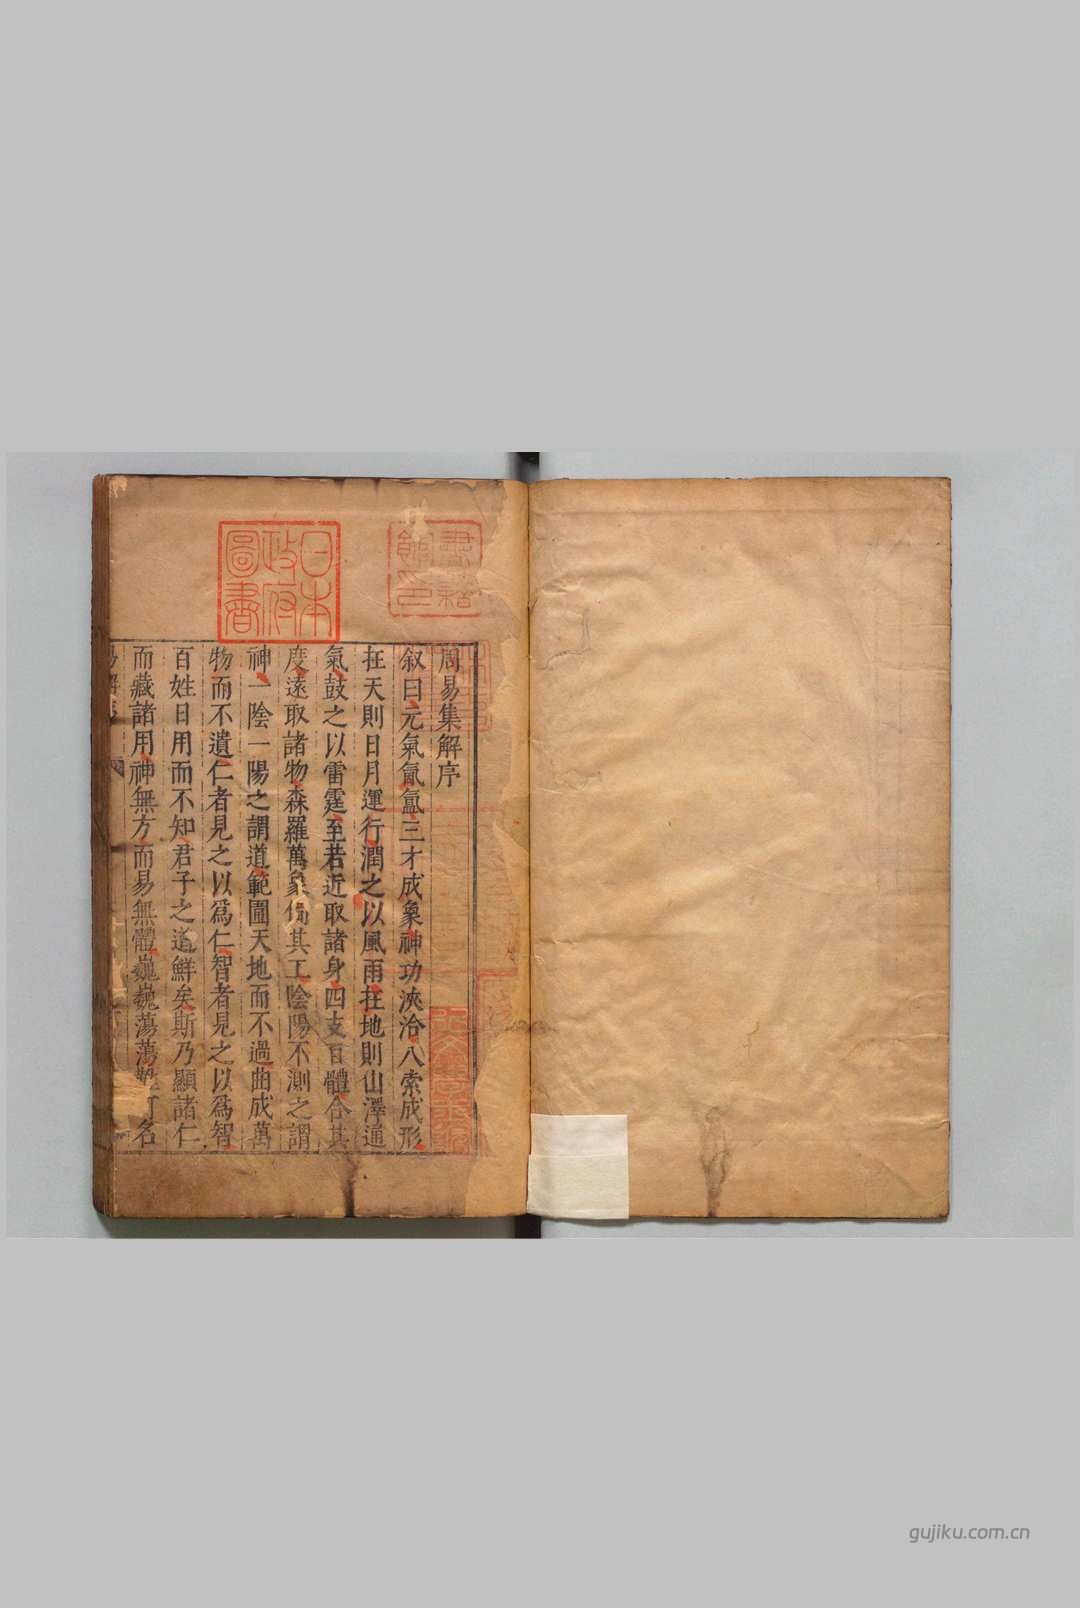 周易集解序
叙曰元氣氤氳三才成象神功浹洽八索成形
在天則日月運行潤之以風雨在地則山澤通
氣鼓之以雷霆至若近取諸身四支百體合其
度遠取諸物森羅萬象備其工陰陽不測之謂
神一陰一陽之謂道範圍天地而不過曲成萬
物而不遺仁者見之以爲仁智者見之以爲智
百姓日用而不知君子之道鮮矣斯乃顯諸仁
而藏諸用神無方而易無體巍巍蕩蕩難可名
日本
政府
圖書
書籍
館印
gujiku.com.cn